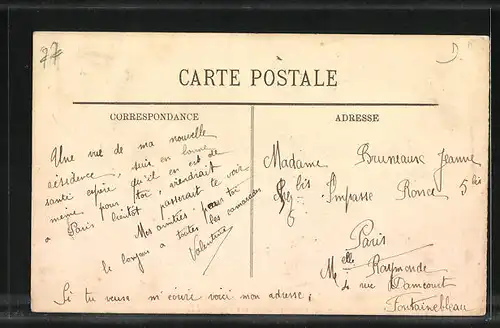 77
D.
CARTE POSTALE
CORRESPONDANCE
ADRESSE
Une vue de ma nouvelle
résidence, suis en bonne
santé espère qu'il en est de
même pour toi, viendrait
à Paris bientôt passerait te voir
Mes amitiés pour toi
le bonjour à toutes les camarades
Valentine
Madame Bruneaux Jeanne
bis Impasse Ronce 5 bis
6
Paris
Melle Raymonde
4 rue Damcourt
Fontainebleau
Si tu veux m'écrire voici mon adresse,